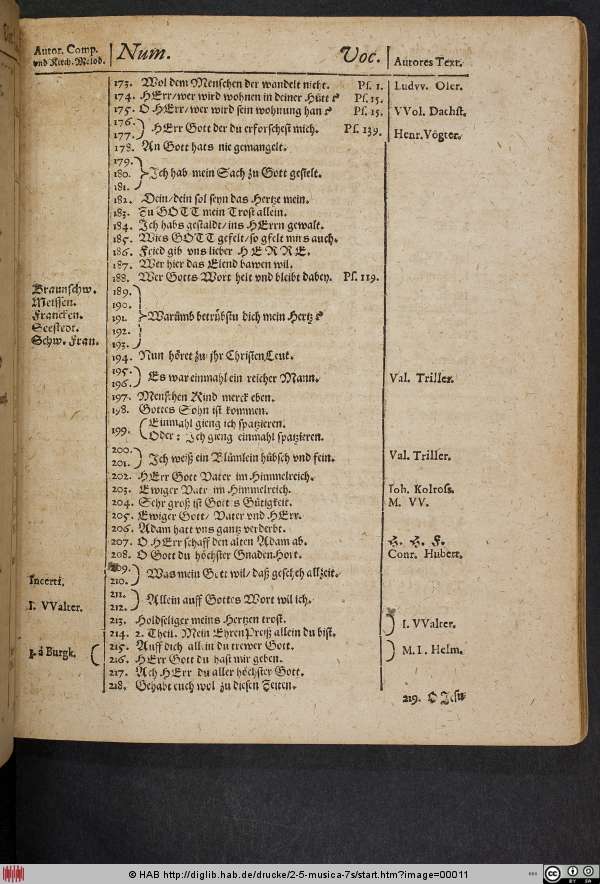 Autor. Comp. Num. Voc. Autores Text.
vnd Kirch. Melod.
173. Wol dem Menschen der wandelt nicht. Ps. 1. Ludvv. Oler.
174. HErr/wer wird wohnen in deiner Hütt ꝛc Ps. 15.
175. O HErr/ wer wird sein wohnung han ꝛc Ps. 15. VVol. Dachst.
176.
177. HErr Gott der du erforschest mich. Ps. 139. Henr. Vögter.
178. An Gott hats nie gemangelt.
179.
180. Ich hab mein Sach zu Gott gestelt.
181.
182. Dein/dein sol seyn das Hertze mein.
183. Zu GOTT mein Trost allein.
184. Ich habs gestaldt/ins HErrn gewalt.
185. Wies GOTT gefelt/so gfelt mirs auch.
186. Fried gib vns lieber HERRE.
187. Wer hier das Elend bawen wil.
188. Wer Gotts Wort helt vnd bleibt dabey. Ps. 119.
Braunschw. 189.
Meissen. 190.
Francken. 191. Warümb betrübstu dich mein Hertz ꝛc
Seestedt. 192.
Schw. Fran. 193.
194. Nun höret zu jhr Christen Leut.
195.
196. Es war einmahl ein reicher Mann. Val. Triller.
197. Menschen Kind merck eben.
198. Gottes Sohn ist kommen.
199. Einmahl gieng ich spatzieren.
Oder: Ich gieng einmahl spatzieren.
200.
201. Ich weiß ein Blümlein hübsch vnd fein. Val. Triller.
202. HErr Gott Vater im Himmelreich.
203. Ewiger Vatr im Himmelreich. Ioh. Kolross.
204. Sehr groß ist Gott s Gütigkeit. M. VV.
205. Ewiger Gott/ Vater vnd HErr.
206. Adam hatt vns gantz verderbt.
207. O HErr schaff den alten Adam ab. H. H. F.
208. O Gott du höchster Gnaden-Hort. Conr. Hubert.
209.
Incerti. 210. Was mein Gott wil/ daß gescheh allzeit.
211.
I. VValter. 212. Allein auff Gottes Wort wil ich.
213. Holdseliger meins Hertzen trost. I. VValter.
214. 2. Theil. Mein Eyren Preiß allein du bist.
I. á Burgk. 215. Auff dich allein du trewer Gott. M. I. Helm.
216. HErr Gott du hast mir geben.
217. Ach HErr du aller höchster Gott.
218. Gehabt euch wol zu diesen Zeiten.
219. O Jesu
© HAB http://diglib.hab.de/drucke/2-5-musica-7s/start.htm?image=00011